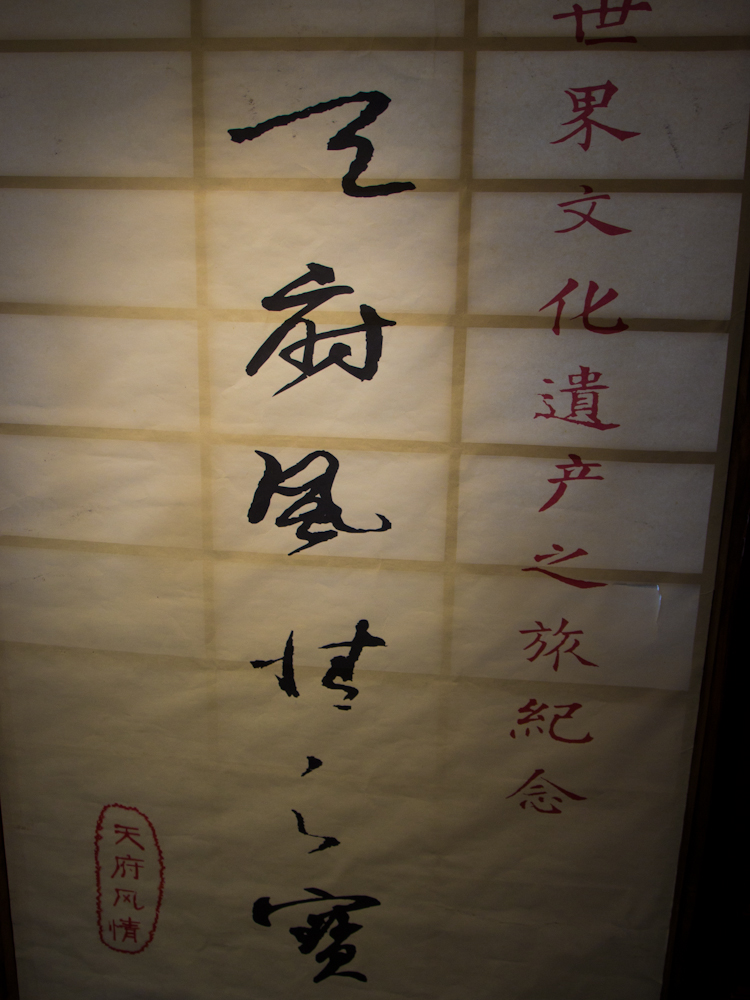 世界文化遺产之旅紀念
天府风情之寳
天府风情